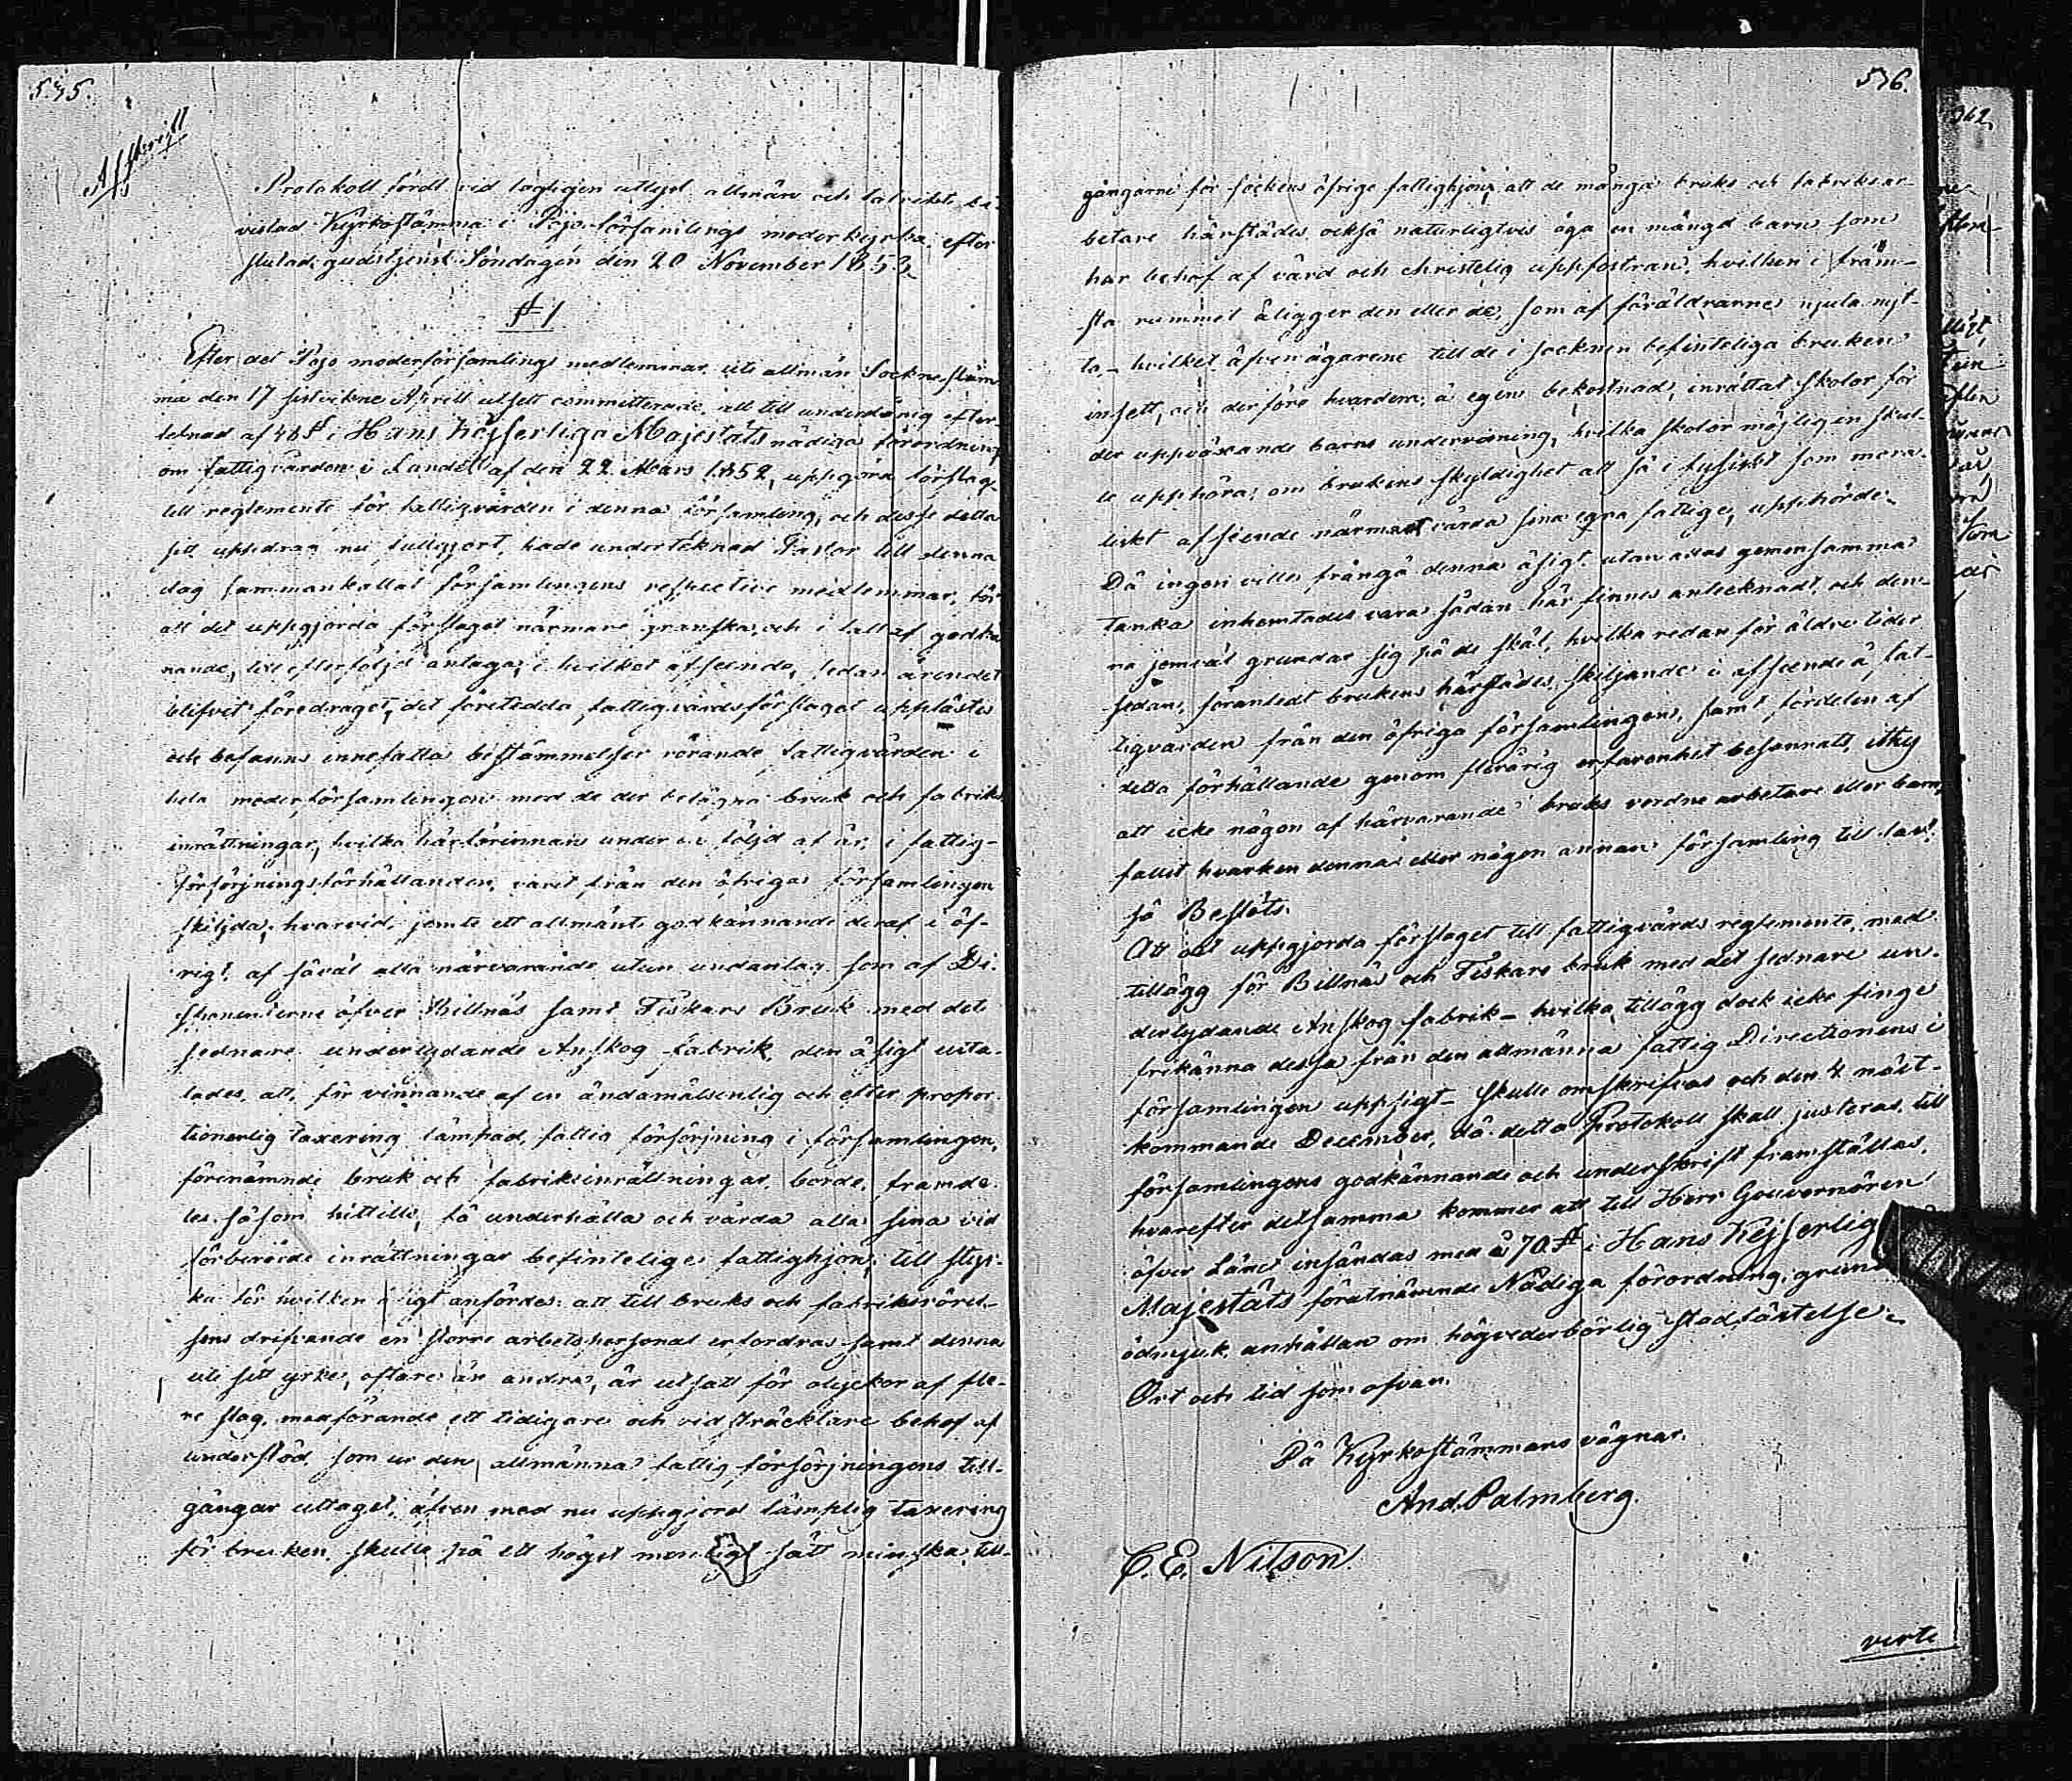 535.
Afskrift
Protokoll fördt vid lagligen utlyst allmän och talrikt be-
vistad Kyrkostämma i Pojo församlings moderkyrka efter
slutad gudstjenst Söndagen den 20 November 1853.
§ 1
Efter det Pojo moderförsamlings medlemmar uti allmän Sockneståm
ma den 17 sistvikne Aprill utsett committerade, att till underdånig efter-
lefnad af 48 § i Hans Kejserliga Majestäts nådiga förordning
om fattigvården i Landet af den 22 Mars 1852, uppgöra förslag
till reglemente för fattigvården i denna församling, och desse detta
sitt uppdrag nu fullgjort, hade undertecknad Pastor till denna
dag sammankallat församlingens respective medlemmar, för
att det uppgjorda förslaget närmare granska, och i fall af godkä
nande, till efterföljd antaga; i hvilket afseende, sedan ärendet
blifvit föredraget, det företedda fattigvårdsförslaget upplästes
och befanns innefatta bestämmelser rörande fattigvården i
hela moderförsamlingen med de der belägna bruk och fabriks
inrättningar, hvilka härförinnan under en följd af år, i fattig-
försörjningsförhållanden, varit från den öfriga församlingen
skiljda; hvarvid, jemte ett allmänt godkännande deraf i öf-
rigt af såväl alla närvarande utan undantag som af Di-
sponenterne öfver Billnäs samt Fiskars Bruk med det
sednare underlydande Anskog fabrik, den åsigt utta-
lades, att, för vinnande af en ändamålsenlig och efter propor-
tionerlig taxering lämpad, fattig försörjning i församlingen,
förenämnde bruk och fabriksinrättningar, borde, framde-
les såsom hittills, få underhålla och vårda alla sina vid
förberörde inrättningar befinteliga fattighjon; till styr-
ka för hvilken åsigt anfördes: att till bruks och fabriksrörel-
sens drifvande en större arbetspersonal erfordras samt denna
uti sitt yrke, oftare än andra, är utsatt för olyckor af fle-
re slag, medförande ett tidigare och vidsträcktare behof af
understöd, som ur den allmänna fattig försörjningens till-
gångar uttaget, äfven med nu uppgjord lämplig taxering
för bruken, skulle på ett högst menligt sätt minska till-
536.
gångarne för sockens öfrige fattighjon; att de många bruks och fabriksar-
betare härstädes också naturligtvis äga en mängd barn som
har behof af vård och christelig uppfostran, hvilken i främ-
sta rummet åligger den eller de, som af föräldrarne njuta nyt-
ta, – hvilket äfven ägarene till de i socknen befinteliga bruken
insett, och derföre hvardera, å egen bekostnad, inrättat skolor för
der uppväxande barns undervisning, hvilka skolor möjligen skul-
le upphöra, om brukens skyldighet att så i fysiskt som mora-
liskt afseende närmast vårda sina egna fattige, upphörde.
Då ingen ville frångå denna åsigt utan allas gemensamma
tanka inhemtades vara sådan här finnes antecknadt, och den-
na jemväl grundar sig på de skäl, hvilka redan för äldre tider
sedan, föranledt brukens härstädes skiljande i afseende å fat-
tigvården från den öfriga församlingens, samt fördelen af
detta förhållande genom flerårig erfarenhet besannats, ithy
att icke någon af härvarande bruks vordne arbetare eller barn,
fallit hvarken denna eller någon annan församling till last.
så Beslöts.
Att det uppgjorda förslaget till fattigvårds reglemente, med
tillägg för Billnäs och Fiskars bruk med det sednare un-
derlydande Anskog fabrik – hvilka tillägg dock icke finge
frikänna dessa från den allmänna fattig Directionens i
församlingen uppsigt – skulle omskrifvas och den 4 näst-
kommande December, då detta Protokoll skall justeras, till
församlingens godkännande och underskrift framställas,
hvarefter detsamma kommer att till Herr Gouvernören
öfver Länet insändas med å 70 § i Hans Kejserlig
Majestäts förutnämnde Nådiga förordning, grun
ödmjuk anhållan om högvederbörlig stadfästelse.
Ort och tid som ofvan.
På Kyrkostämmans vägnar.
And. Palmberg.
C. E. Nilson
verte
362